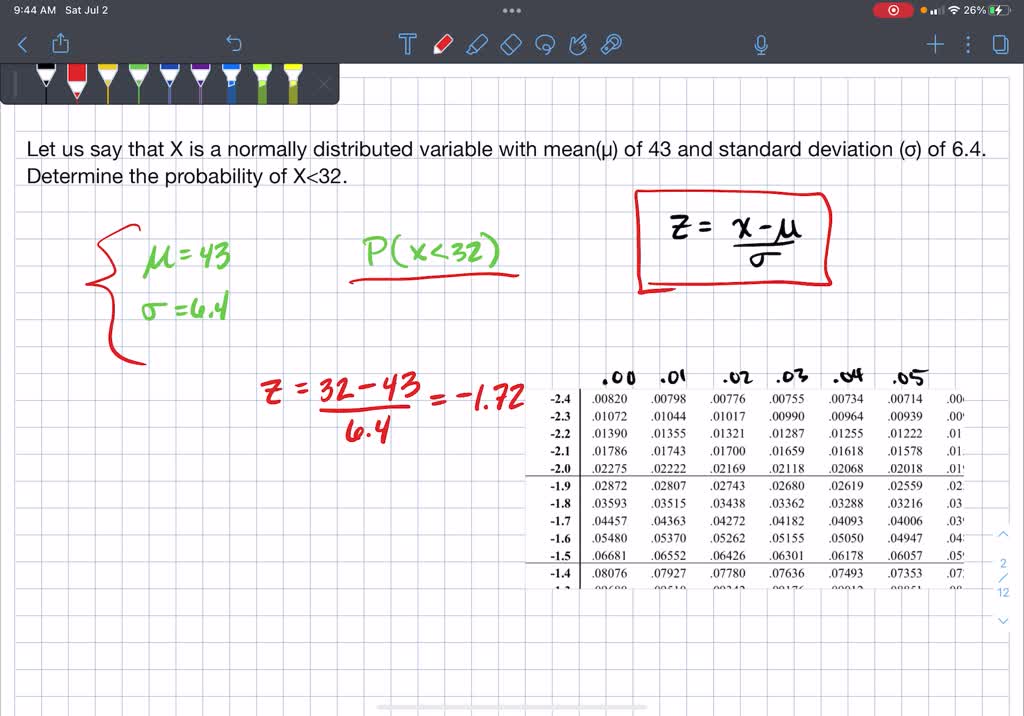 9:44 AM Sat Jul 2
26%
T
Let us say that X is a normally distributed variable with mean(μ) of 43 and standard deviation (σ) of 6.4.
Determine the probability of X<32.
μ = 43
σ = 6.4
P(x<32)
z = x-μ / σ
z = 32-43 / 6.4 = -1.72
.00 .01 .02 .03 .04 .05
-2.4 .00820 .00798 .00776 .00755 .00734 .00714 .00
-2.3 .01072 .01044 .01017 .00990 .00964 .00939 .00
-2.2 .01390 .01355 .01321 .01287 .01255 .01222 .01
-2.1 .01786 .01743 .01700 .01659 .01618 .01578 .01
-2.0 .02275 .02222 .02169 .02118 .02068 .02018 .01
-1.9 .02872 .02807 .02743 .02680 .02619 .02559 .02
-1.8 .03593 .03515 .03438 .03362 .03288 .03216 .03
-1.7 .04457 .04363 .04272 .04182 .04093 .04006 .03
-1.6 .05480 .05370 .05262 .05155 .05050 .04947 .04
-1.5 .06681 .06552 .06426 .06301 .06178 .06057 .05
-1.4 .08076 .07927 .07780 .07636 .07493 .07353 .07
2
/
12